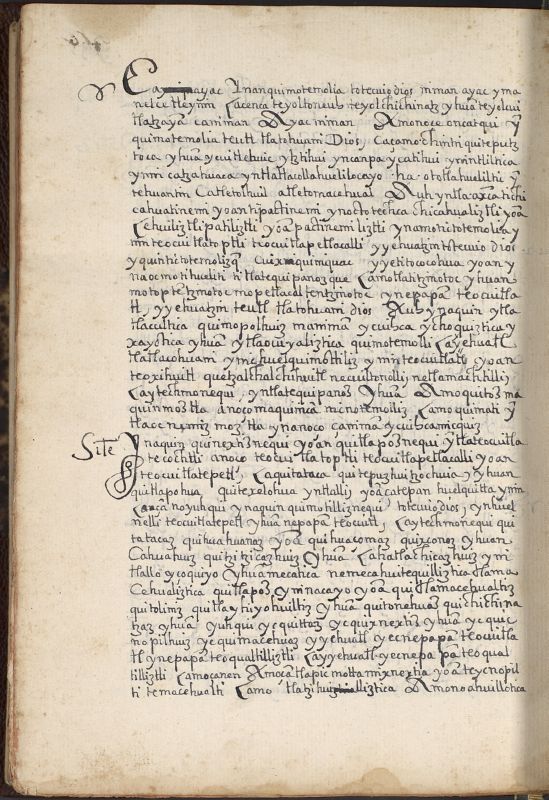 Ca ayac ynanquimotemolia totecuio dios inman ayac yma
nel ce tleynin Ca cenca teyoltoneuh teyolchichinatz yhuā teyolcui
tlatzayā caniman Ayac niman Amo noce oncatqui y
quimotemolia teutl tlatohuani Dios, Ca camo chintri quiteputz
toca yhuā ycuitlehuic ytztihui yncanpa ycatihui yninitliltica
ynin catzahuaca yntlatlacollahuelilocayo
tehuantin Catle tolhuil atle tomacehual Auh yntla axca chichi
cahuatinemi yoan tipactinemi
Cehuiliztli pahtiliztli yoā pactinemiliztli ynamo titotemolia y
nin teocuitlatoptli teocuitlapetlacalli yyehuatzin totecuio dios
y quinti totemolizq Cuix
na oc motihueliti titlatequipanozque Camo tlatitzinotoc yhuan
motoptentzinotoc mopetlacaltentzinotoc ynepapā teocuitla
tl, yyehuatzin teutl tlatohuani dios Auh ynaquin ytla
tlacultica quimopolhuiz ycuihca ychoquiztica y
xayotica yhuā ytlaocuyaliztica quimotemolli Ca yehuatl
tlatlacohuani ymihuelquimottiliz ynin teocuitlatl yoan
teoxihuitl quetzalchalchihuitl necuiltonolli, netlamachtilli,
Ca ytechmonequi, yntlatequipanoz yhuā Amo quitoz ma
quinmoztla anoco maquimica ninotemoliz Camo quimati y
tla oc nemiz moztla ynanoco canima ycuihcamicquiz
Site Ynaquin quinextiznequi yoan quitlapoznequi ytlateocuitla
tecochtli anoco teocuitlatoptli teocuitlapetlacalli yoan
teocuitlatepetl, Ca quitataca quitepuzhuitzochuia, yhuan
quitlapohua quitexelohua yntlalli, yoā catepan huelquitta ynin
Ca çā no yuhqui ynaquin quimottiliznequi totecuio dios, ynhuel
nelli teocuitlatepetl yhuā nepapā teocuitl, Ca ytechmonequi qui
tatacaz quihuahuanaz yoā quihuacomaz quixconoz yhuan
Cahuahuiz quitzitzicazhuiz yhuā Cahatlatzicazhuiz yni
tlallo yçoquiyo yhuā mecatica nemecahuitequilliztica tlama
Cehualiztica quitlapoz yninacayo yoā quitlamacehualtiz
quitoliniz quitlayhiyohuiltiz yhuā quitonehuaz quichichina
tzaz yhuā yuhqui yc quittaz yc quixnextiz yhuā yc quic
nopilhuiz yc quimacehuaz yyehuatl ycenepapā teocuitla
tl ynepapā teoqualtilliztli Ca yyehuatl ycenepapā teoqual
tilliztli Ca mocanon Amo çā tlapic motta mixnextia yoā teycnopil
ti temacehualti Camo Amo no ahuillotica